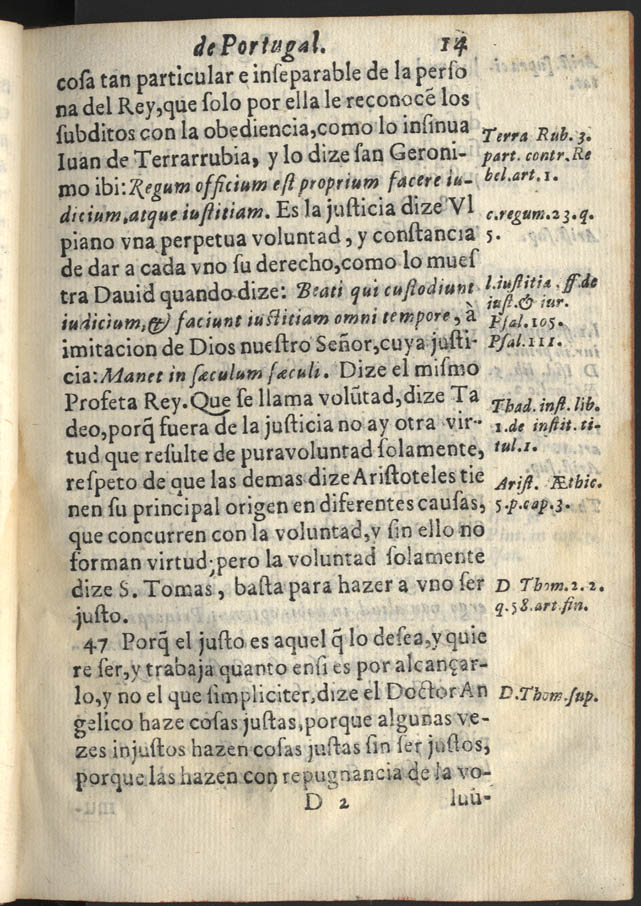 de Portugal. 14
cosa tan particular e inseparable de la perso
na del Rey, que solo por ella le reconocẽ los
subditos con la obediencia, como lo insinua
Iuan de Terrarrubia, y lo dize san Geroni-
mo ibi: Regum officium est proprium facere iu-
dicium, atque iustitiam. Es la justicia dize Vl
piano vna perpetua voluntad, y constancia
de dar a cada vno su derecho, como lo mues
tra Dauid quando dize: Beati qui custodiunt
iudicium, & faciunt iustitiam omni tempore, à
imitacion de Dios nuestro Señor, cuya justi-
cia: Manet in sæculum sæculi. Dize el mismo
Profeta Rey. Que se llama volũtad, dize Ta
deo, porq̃ fuera de la justicia no ay otra vir-
tud que resulte de pura voluntad solamente,
respeto de que las demas dize Aristoteles tie
nen su principal origen en diferentes causas,
que concurren con la voluntad, y sin ello no
forman virtud; pero la voluntad solamente
dize S. Tomas, basta para hazer a vno ser
justo.
47 Porq̃ el justo es aquel q̃ lo desea, y quie
re ser, y trabaja quanto en si es por alcançar-
lo, y no el que simpliciter, dize el Doctor An
gelico haze cosas justas, porque algunas ve-
zes injustos hazen cosas justas sin ser justos,
porque las hazen con repugnancia de la vo-
D 2 lun-
Terra Rub. 3.
part. contr. Re
bel. art. 1.
c. regum. 23. q.
5.
l. iustitia. ff. de
iust. & iur.
Psal. 105.
Psal. 111.
Thad. inst. lib.
1. de instit. ti-
tul. 1.
Arist. Æthic.
5. p. cap. 3.
D Thom. 2. 2.
q. 58. art. fin.
D. Thom. sup.